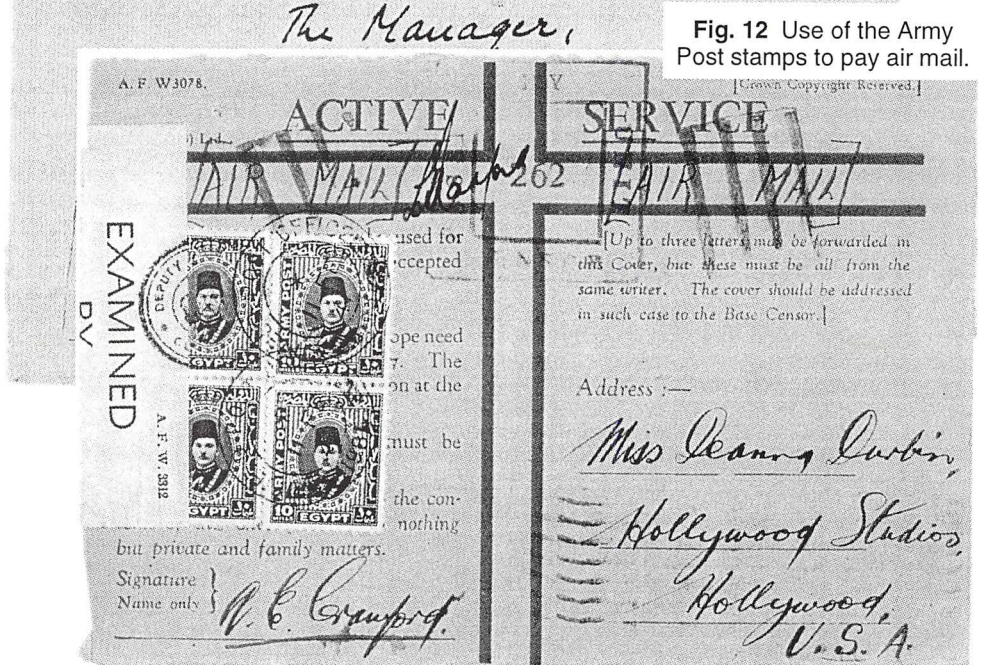 The Manager,
Fig. 12 Use of the Army
Post stamps to pay air mail.
A. F. W3078.
[Crown Copyright Reserved.]
ACTIVE SERVICE
AIR MAIL
262
AIR MAIL
EXAMINED
BY
A. F. W. 3312
DEPUTY
OFFICE
ARMY POST
EGYPT
ARMY POST
10
EGYPT
EGYPT
used for
ccepted
ope need
The
on at the
must be
the con-
nothing
but private and family matters.
Signature
Name only
[Up to three letters may be forwarded in
this Cover, but these must be all from the
same writer. The cover should be addressed
in such case to the Base Censor.]
Address :—
Miss Deanna Durbin,
Hollywood Studios,
Hollywood,
U. S. A.